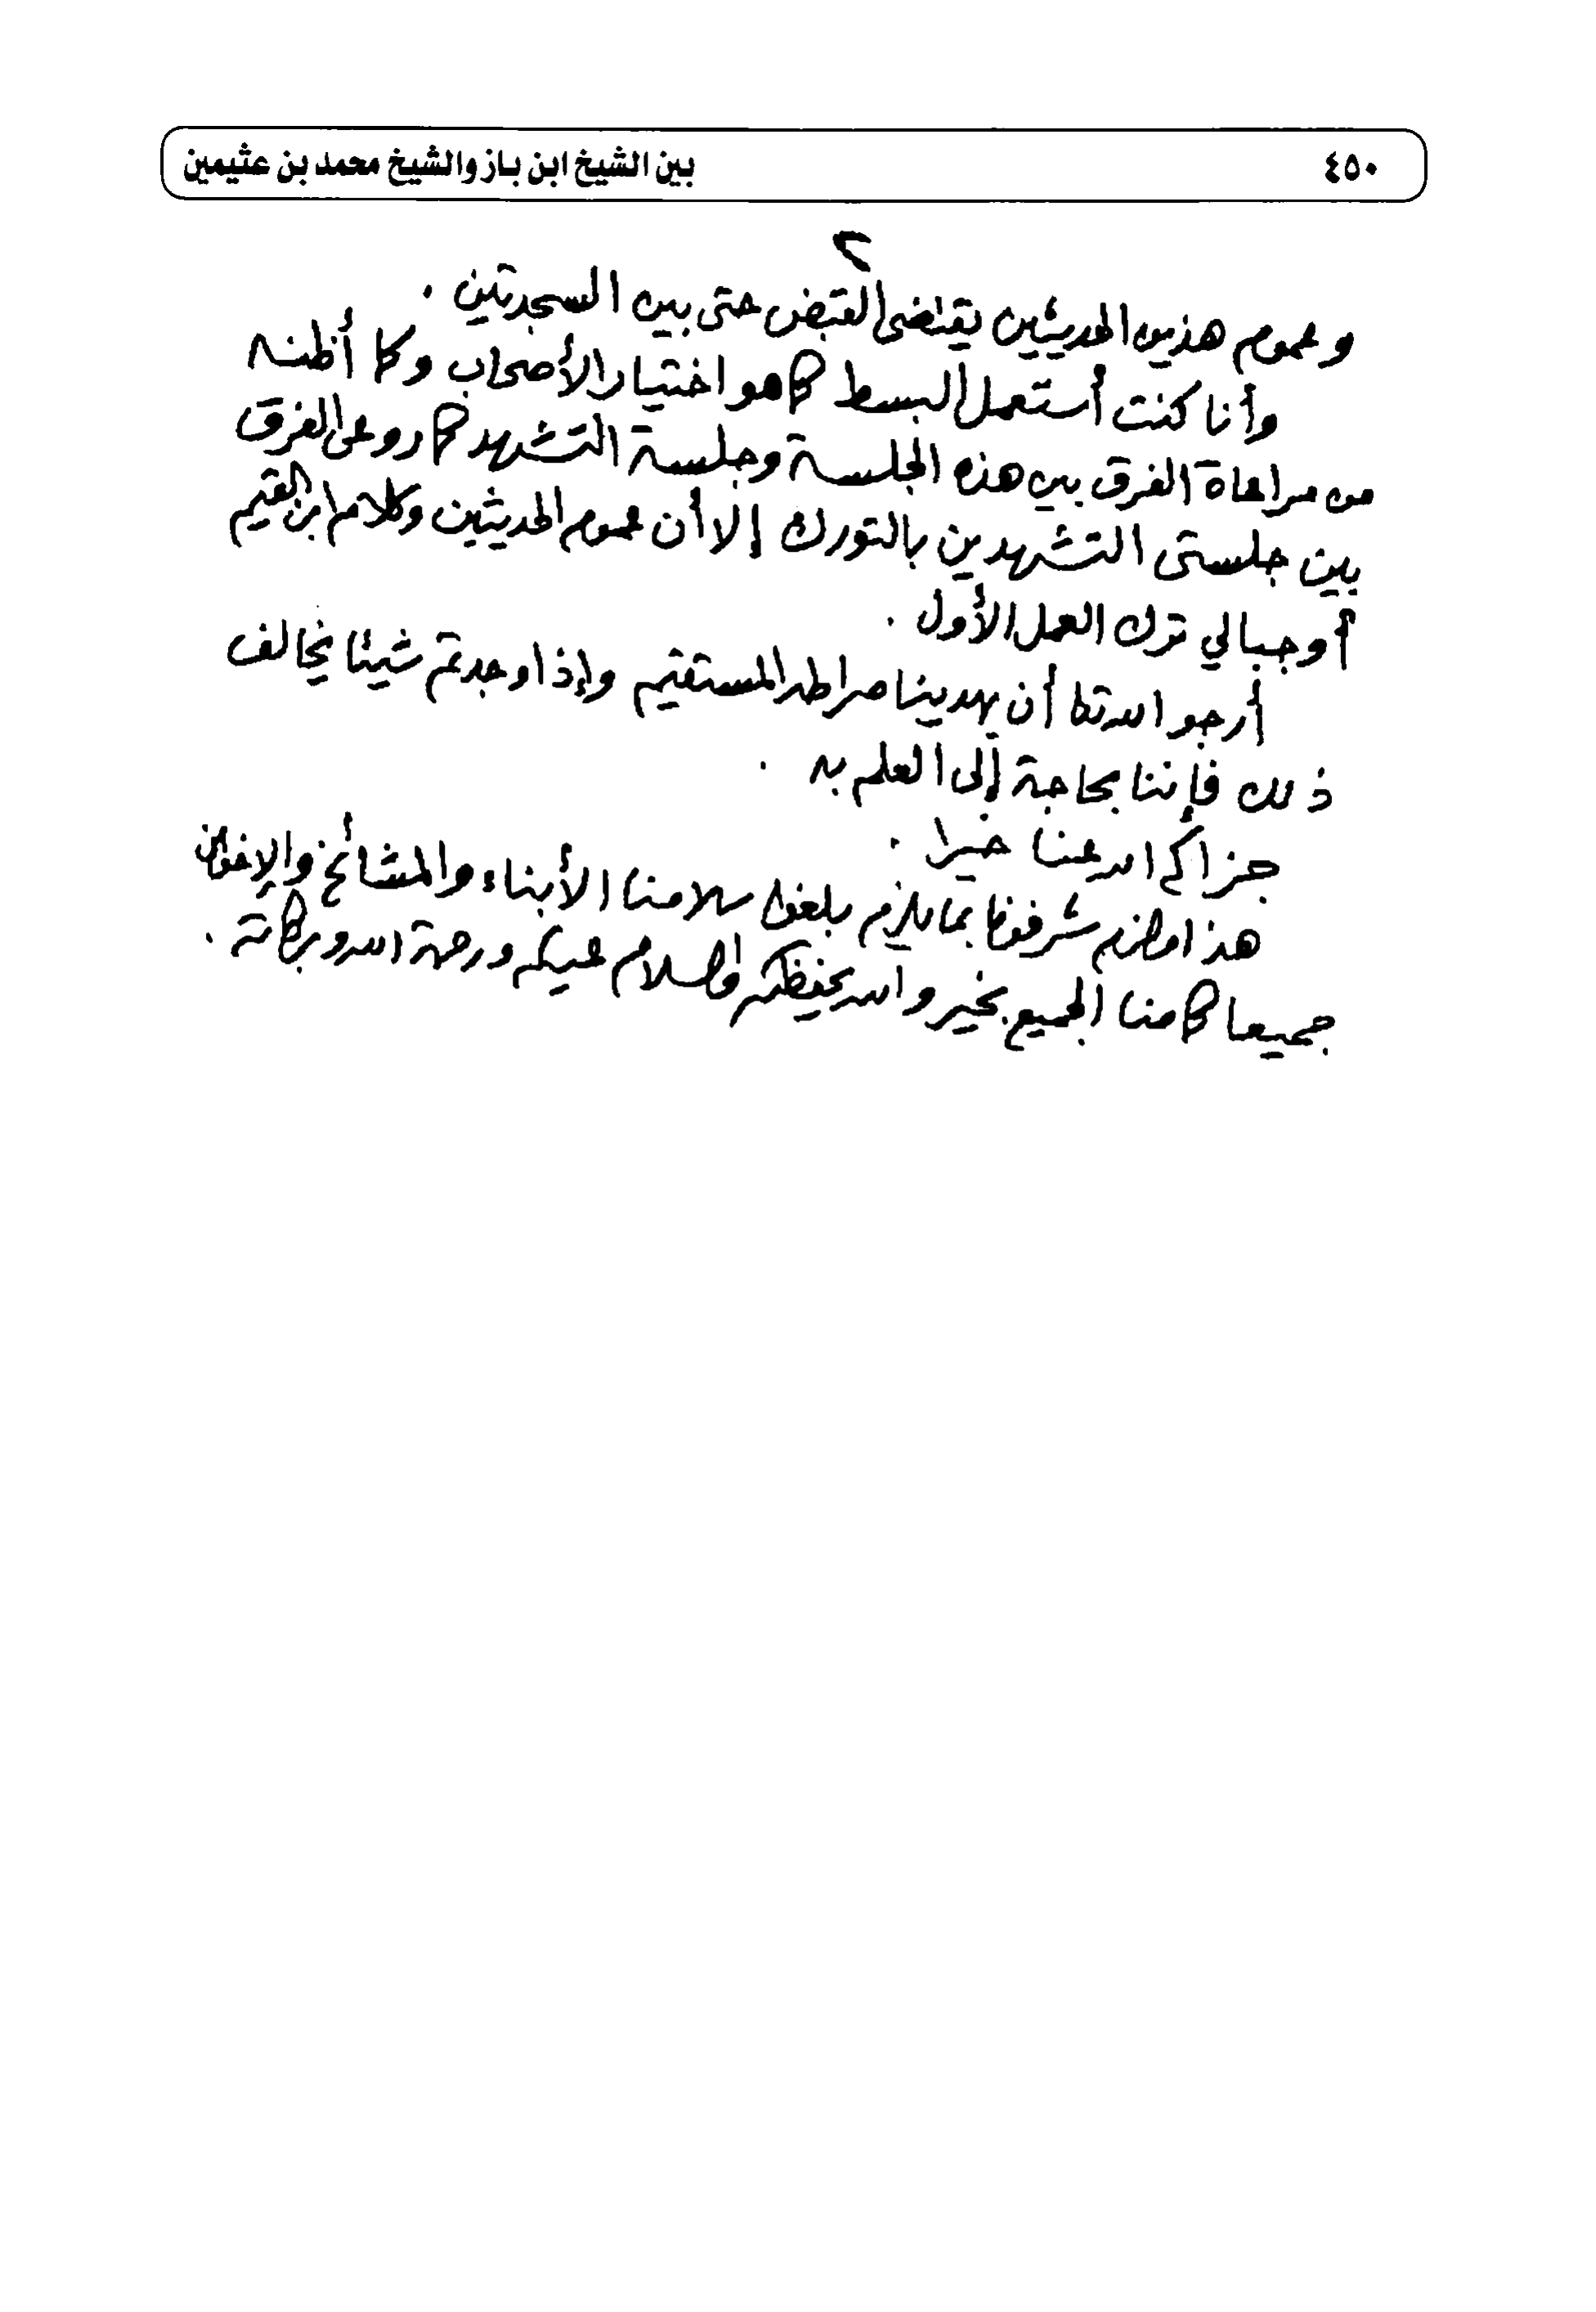 ٤٥٠
بين الشيخ ابن باز والشيخ محمد بن عثيمين
٢
وعموم هذين الحديثين يقتضى القبض حتى بين السجدتين .
وأنا كنت أستعمل البسط كما هو اختيار الأصحاب وكما أظنه
من مراعاة الفرق بين هذه الجلسة وجلسة التشهد كما روعى الفرق
بين جلستى التشهدين بالتورك إلا أن عموم الحديثين وكلام ابن القيم
أوجبا لي ترك العمل الأول .
أرجو الله تعا أن يهدينا صراطه المستقيم وإذا وجدتم شيئا يخالف
ذلك فإننا بحاجة إلى العلم به .
جزاكم الله عنا خيرا .
هذا شرفونا بما يلزم بلغوا سلامنا الأبناء والمشائخ والإخوان
جميعا كما منا الجميع بخير والله يحفظكم والسلام عليكم ورحمة الله وبركاته .